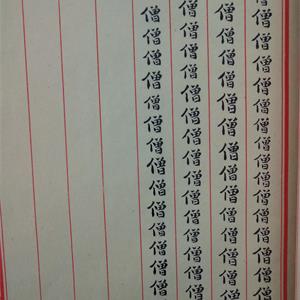 僧僧僧僧僧僧僧僧僧僧僧僧僧僧僧
僧僧僧僧僧僧僧僧僧僧僧僧僧僧
僧僧僧僧僧僧僧僧僧僧僧僧僧
僧僧僧僧僧僧僧僧僧僧僧僧僧